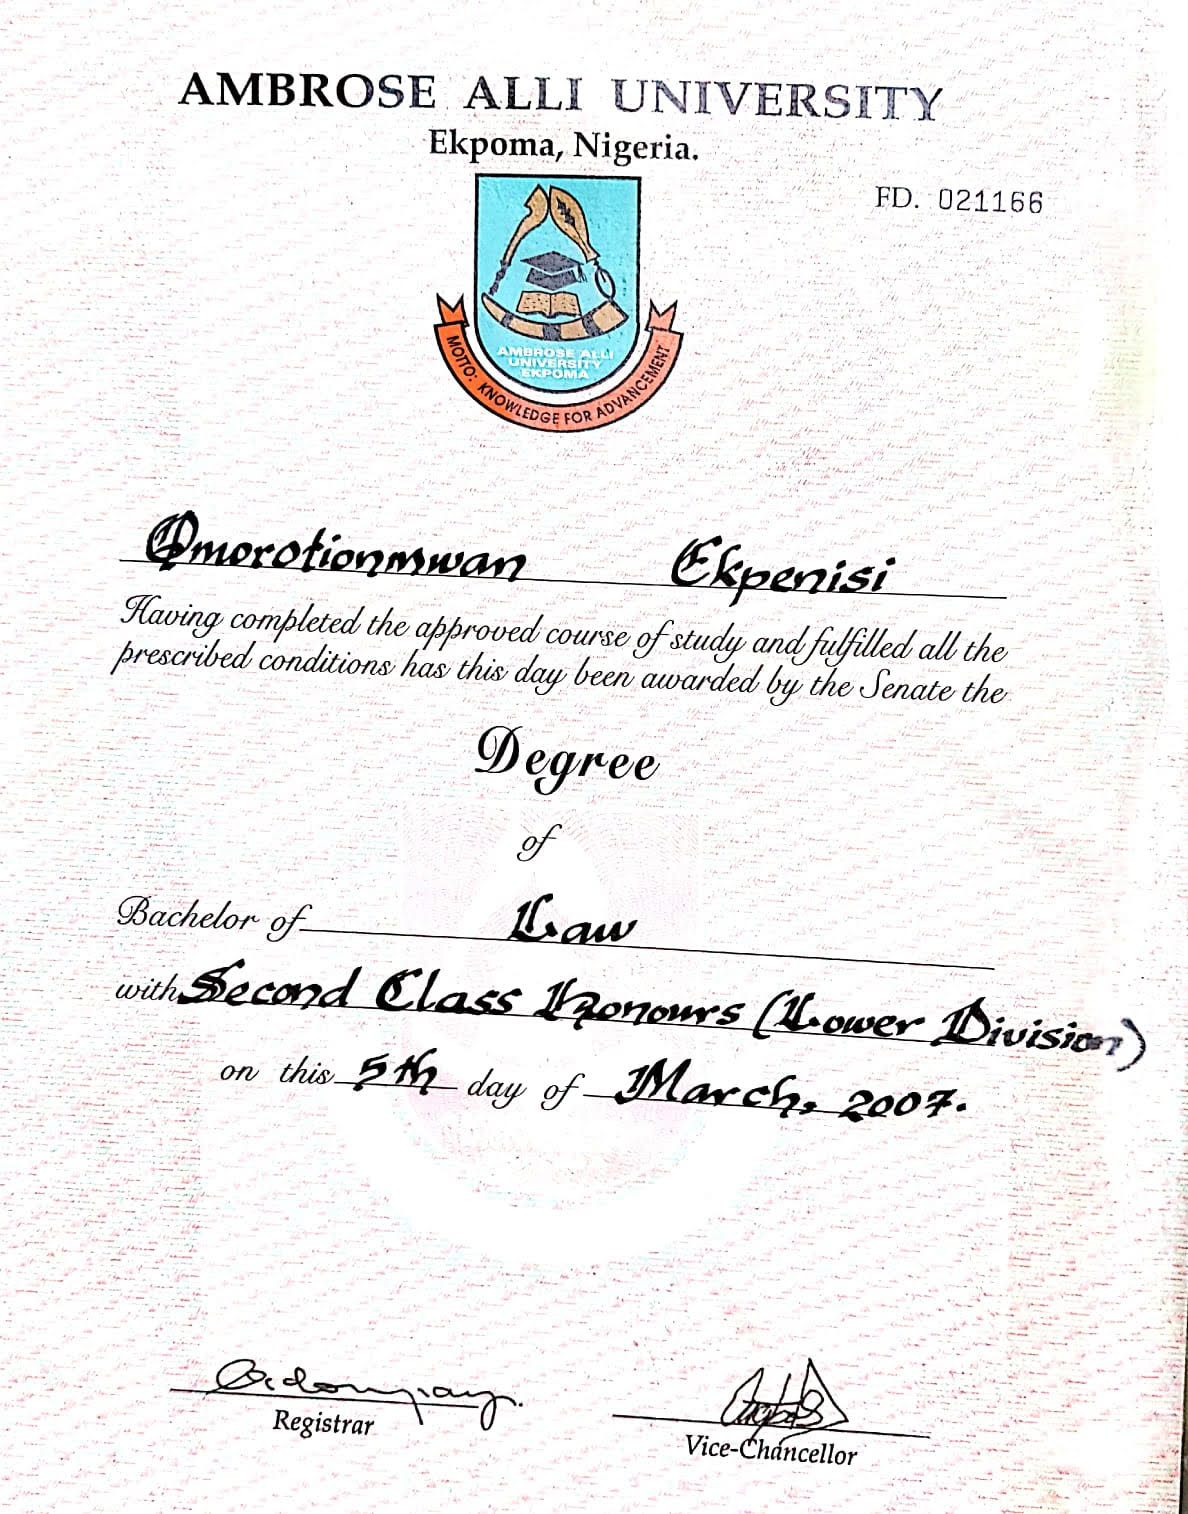 AMBROSE ALLI UNIVERSITY
Ekpoma, Nigeria.
FD. 021166
AMBROSE ALLI
UNIVERSITY
EKPOMA
MOTTO: KNOWLEDGE FOR ADVANCEMENT
Omorotionmwan Ekpenisi
Having completed the approved course of study and fulfilled all the
prescribed conditions has this day been awarded by the Senate the
Degree
of
Bachelor of Law
with Second Class Honours (Lower Division)
on this 5th day of March, 2007.
Registrar
Vice-Chancellor